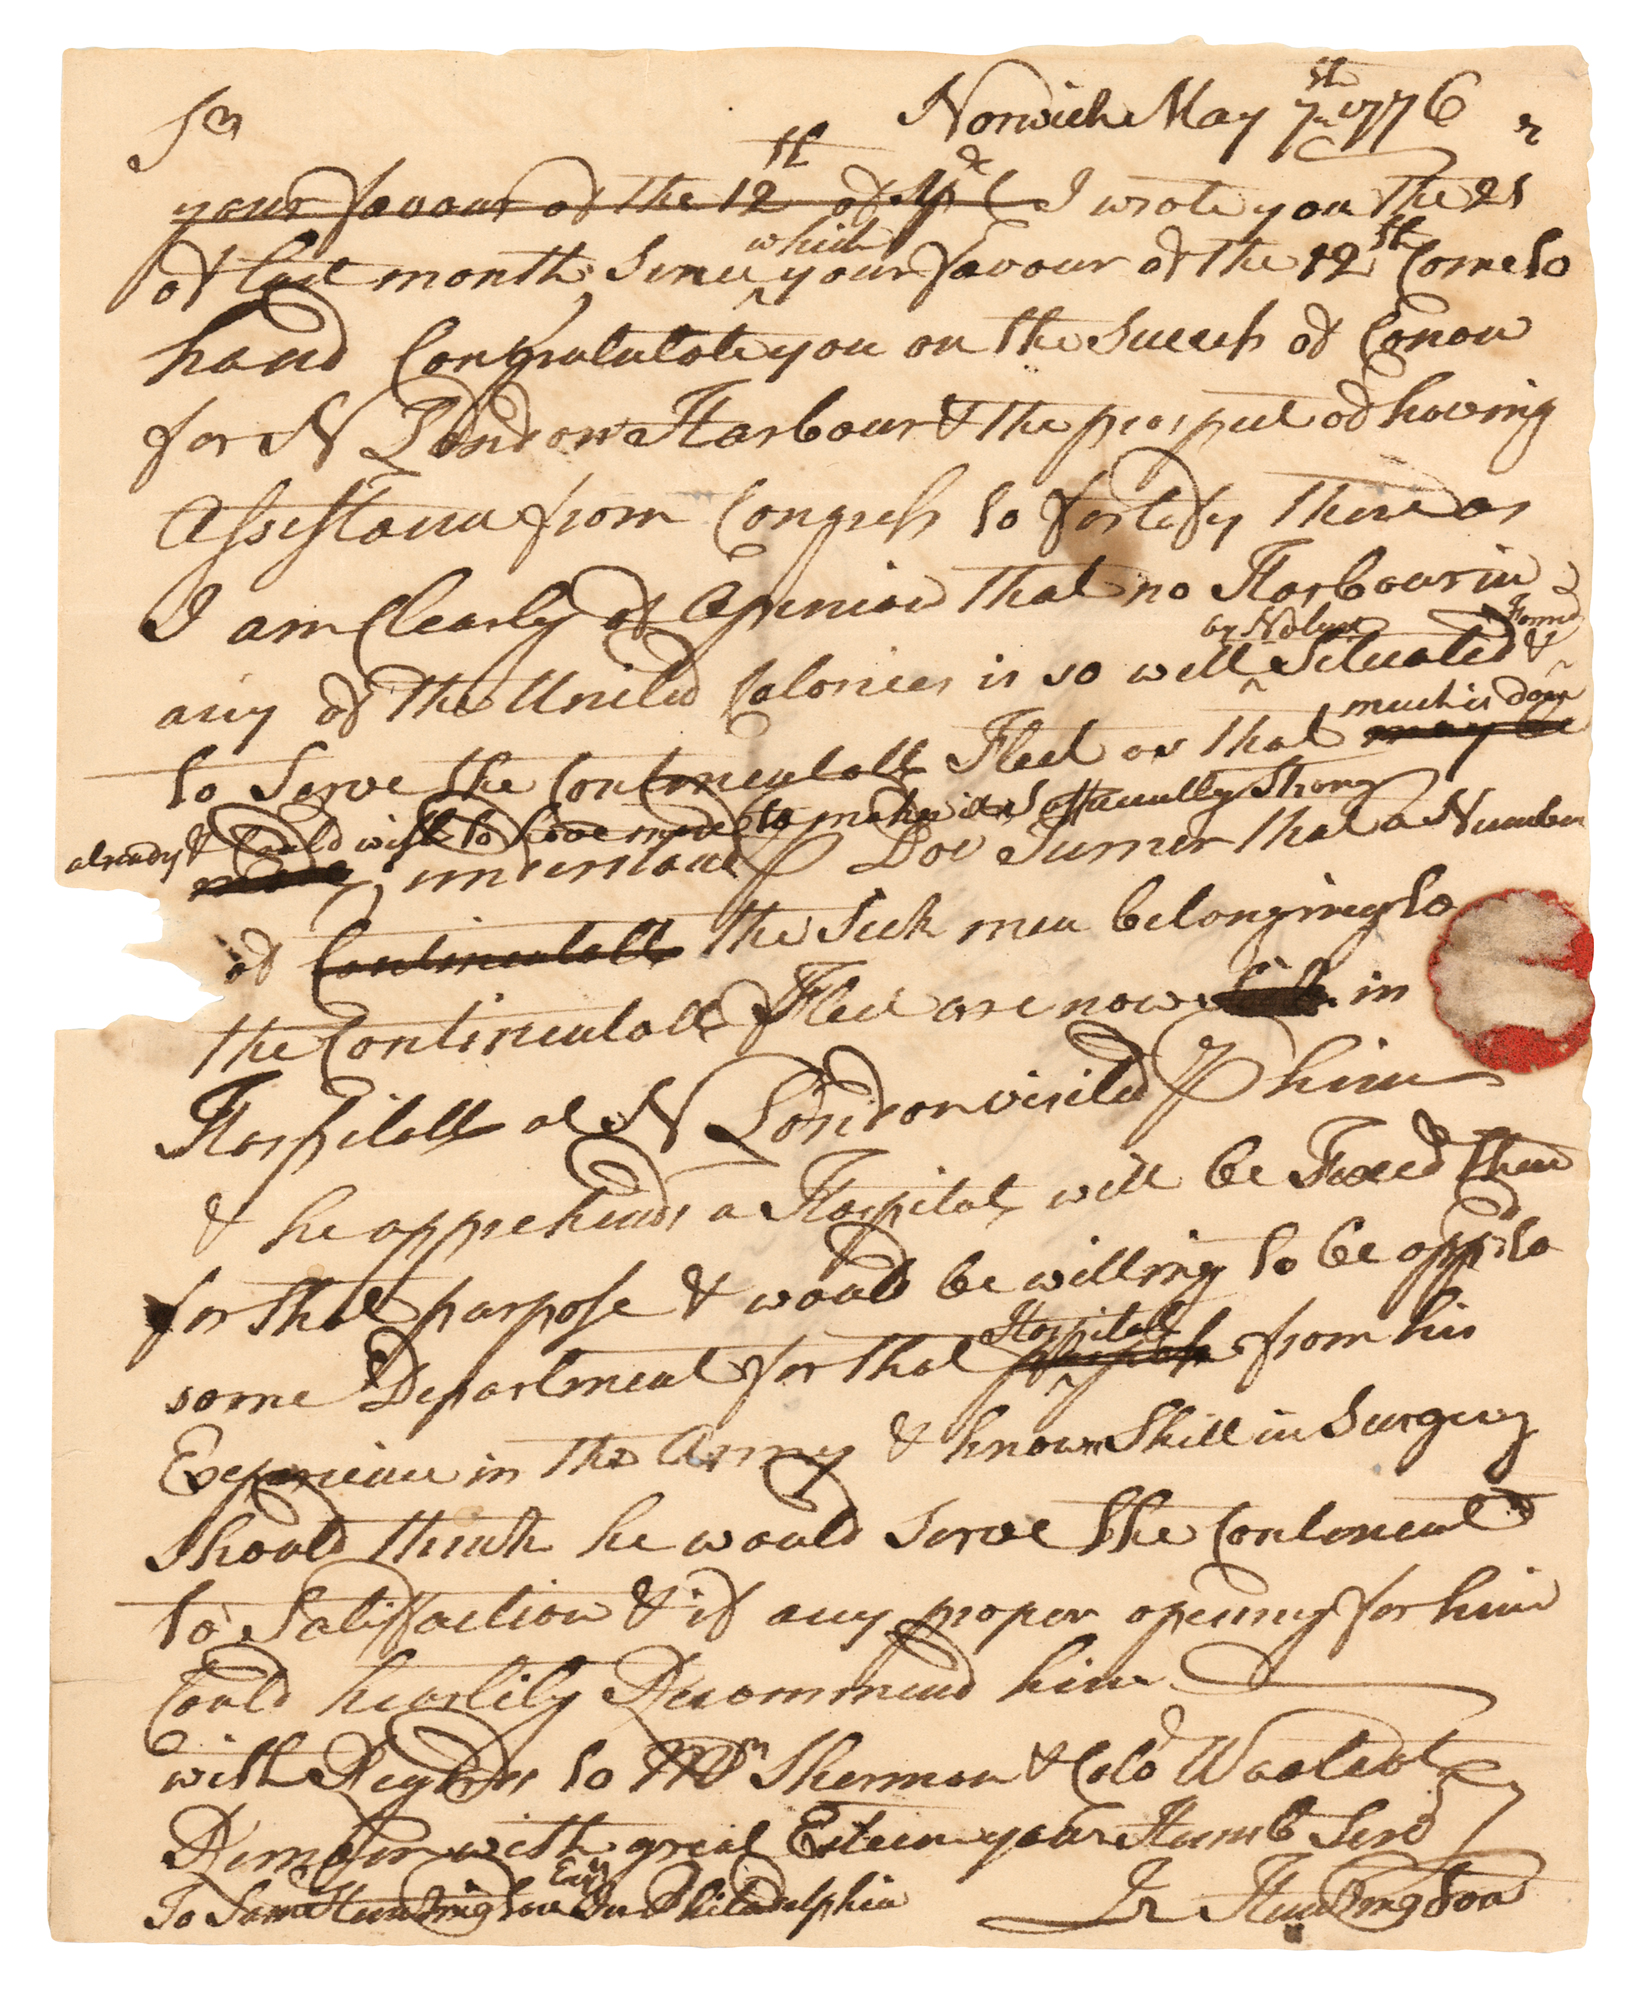 Norwich May 7th 1776
Sr
your favour of the 12th of Apl I wrote you the 21
of last month, Since which your favour of the 12th Come to
hand Congratulate you on the Success of Conon
for N London Harbour & the prospect of having
Assistance from Congress to fortify there as
I am Clearly of Opinion that no Harbour in
any of the United Colonies is so well by Nature Situated & Formed
to Serve the Continentall Fleet as that may be much is done
already & Could wish to have more to make it Sufficiently Strong
more, understand P Doc Turner that a Number
of Continentall the Sick men belonging to
the Continentall Fleet are now Sick in
Hospitall at N London visited P him
& he apprehends a Hospital, will be Fixed there
for that purpose & would be willing to be appd to
some Department for that purpose Hospital from his
Experience in the Army & known Skill in Surgery
Should think he would Serve the Continent
to Satisfaction & if any proper opening for him
Could heartily Recommend him
with Regards to Mr Sherman & Colo Woolcot
Remain with great Esteem your Humb Servd
To Saml Huntington Esqr In Philadelphia
Jz Huntington